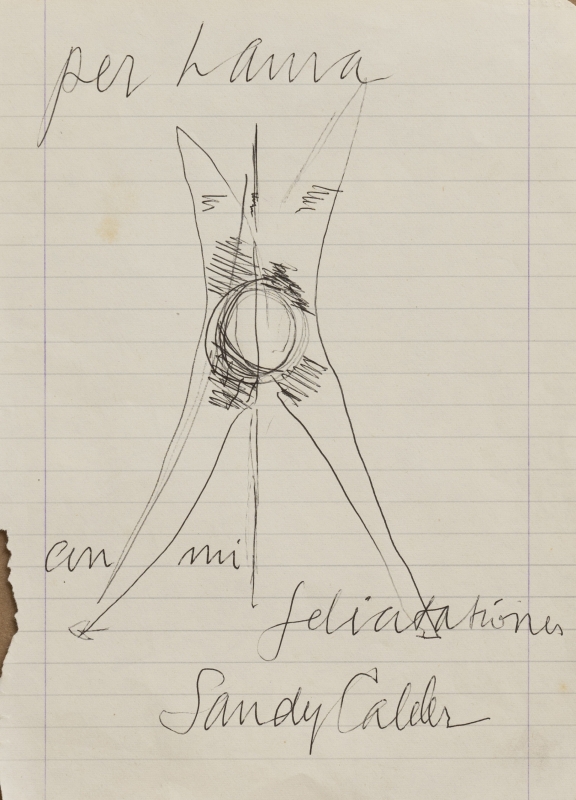 per Laura
con mi
felicitationes
Sandy Calder